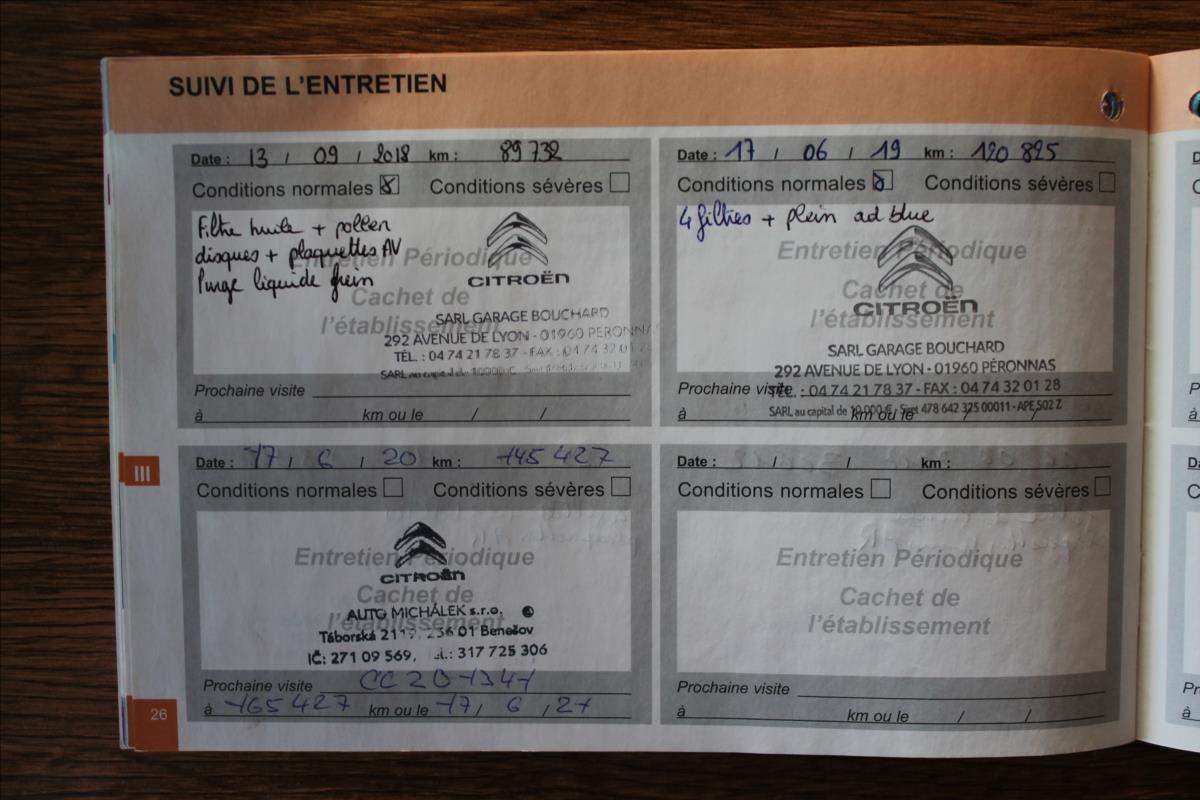 SUIVI DE L'ENTRETIEN
Date : 13 / 09 / 2018 km : 89 732
Conditions normales Conditions sévères
Filtre huile + pollen
disques + plaquettes AV
Purge liquide frein
Entretien Périodique
Cachet de
l'établissement
CITROËN
SARL GARAGE BOUCHARD
292 AVENUE DE LYON - 01960 PERONNAS
TÉL. : 04 74 21 78 37 - FAX : 04 74 32 01 28
SARL au capital de 10000 €
Prochaine visite
à km ou le / /
Date : 17 / 06 / 19 km : 120 825
Conditions normales Conditions sévères
4 filtres + plein ad blue
Entretien Périodique
Cachet de
l'établissement
CITROËN
SARL GARAGE BOUCHARD
292 AVENUE DE LYON - 01960 PÉRONNAS
Prochaine visite
TÉL. : 04 74 21 78 37 - FAX : 04 74 32 01 28
SARL au capital de 10 000 € - Siret 478 642 325 00011 - APE 502 Z
à km ou le / /
III
Date : 17 / 6 / 20 km : 145 427
Conditions normales Conditions sévères
Entretien Périodique
Cachet de
l'établissement
CITROËN
AUTO MICHÁLEK s.r.o.
Táborská 256 01 Benešov
IČ: 271 09 569, tel.: 317 725 306
Prochaine visite CC20 1341
à 165 427 km ou le 17 / 6 / 21
Date : / / km :
Conditions normales Conditions sévères
Entretien Périodique
Cachet de
l'établissement
Prochaine visite
à km ou le / /
26